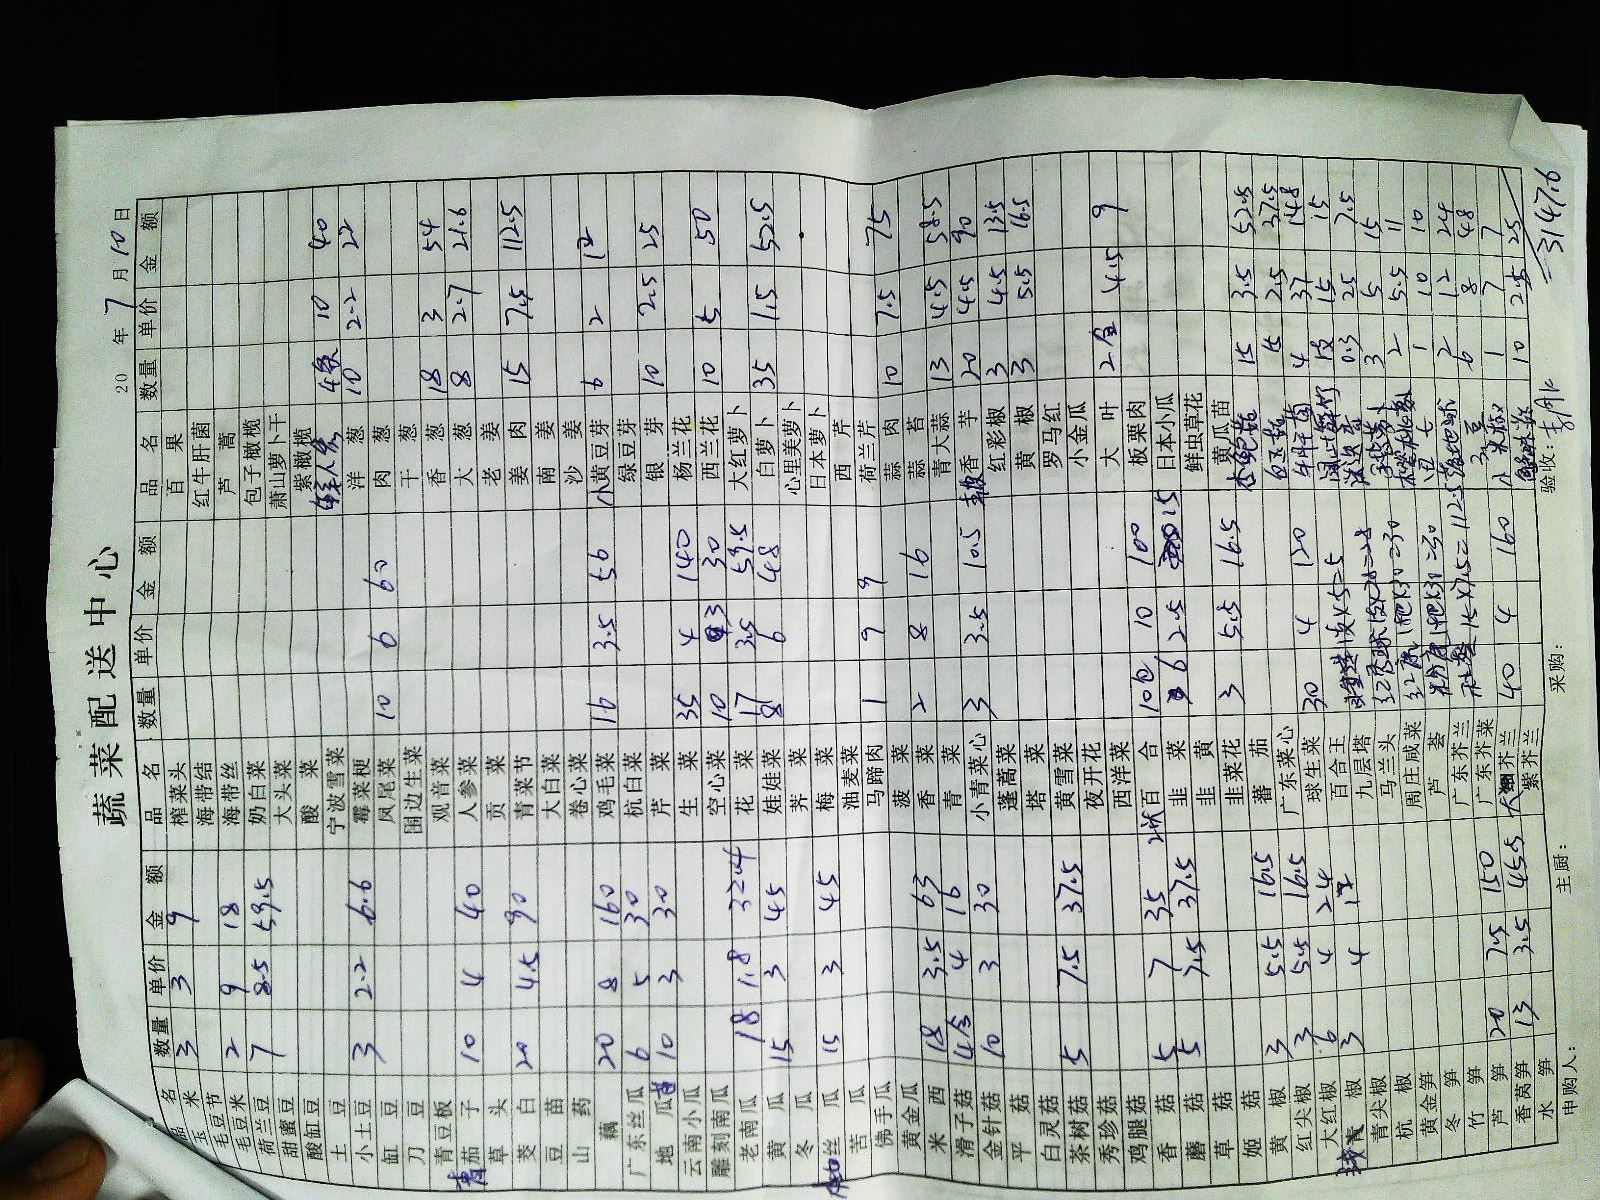 蔬菜配送中心
20 年 7 月 10 日
品名 数量 单价 金额 品名 数量 单价 金额 品名 数量 单价 金额
玉米 3 3 9 榨菜头 百果
毛豆节 海带结 红牛肝菌
毛豆米 2 9 18 海带丝 芦蒿
荷兰豆 7 8.5 59.5 奶白菜 包子橄榄
甜蜜豆 大头菜 萧山萝卜干
酸缸豆 酸菜 紫橄榄
土豆 宁波雪菜 10 40
小土豆 3 2.2 6.6 霉菜梗 洋葱 10 2.2 22
缸豆 凤尾菜 10 6 60 肉葱
刀豆 围边生菜 干葱
青豆板 观音菜 香葱 18 3 54
青茄子 10 4 40 人参菜 大葱 8 2.7 21.6
草头 贡菜 老姜
茭白 20 4.5 90 青菜节 姜肉 15 7.5 112.5
豆苗 大白菜 南姜
山药 卷心菜 沙姜
藕 20 8 160 鸡毛菜 16 3.5 56 小黄豆芽 6 2 12
广东丝瓜 6 5 30 杭白菜 绿豆芽
地瓜 10 3 30 芹菜 银芽 10 2.5 25
云南小瓜 生菜 35 4 140 杨兰花
雕刻南瓜 空心菜 10 3 30 西兰花 10 5 50
老南瓜 18 1.8 32.4 花菜 17 3.5 59.5 大红萝卜
黄瓜 15 3 45 娃娃菜 8 6 48 白萝卜 35 1.5 52.5
冬瓜 荠菜 心里美萝卜
丝瓜 15 3 45 梅菜 日本萝卜
苦瓜 油麦菜 西芹
佛手瓜 马蹄肉 1 9 9 荷兰芹
黄金瓜 菠菜 蒜肉 10 7.5 75
米西 18 3.5 63 香菜 2 8 16 蒜苔
滑子菇 4 16 青菜 青大蒜 13 4.5 58.5
金针菇 10 3 30 小青菜心 3 3.5 10.5 香芋 20 4.5 90
平菇 蓬蒿菜 红彩椒 3 4.5 13.5
白灵菇 塔菜 黄椒 3 5.5 16.5
茶树菇 5 7.5 37.5 黄雪菜 罗马红
秀珍菇 夜开花 小金瓜
鸡腿菇 西洋菜 大叶 2盒 4.5 9
香菇 5 7 35 百合 10包 10 100 板栗肉
蘑菇 5 7.5 37.5 韭菜 6 2.5 15 日本小瓜
草菇 韭黄 鲜虫草花
姬菇 韭菜花 3 5.5 16.5 黄瓜苗
黄椒 3 5.5 16.5 蕃茄 15 3.5 52.5
红尖椒 3 5.5 16.5 广东菜心 2.5 37.5
大红椒 6 4 24 球生菜 30 4 120 4 37 14.8
青椒 3 4 12 百合王 15 15
青尖椒 九层塔 0.3 25 7.5
杭椒 马兰头 3 5 15
黄金笋 周庄咸菜 2 5.5 11
冬笋 芦荟 1 10 10
竹笋 广东芥兰 2 12 24
芦笋 20 7.5 150 广东芥菜 6 8 48
香莴笋 13 3.5 45.5 芥兰 40 4 160 1 7 7
水笋 紫芥兰 10 2.5 25
申购人： 主厨： 采购： 验收： 3147.6